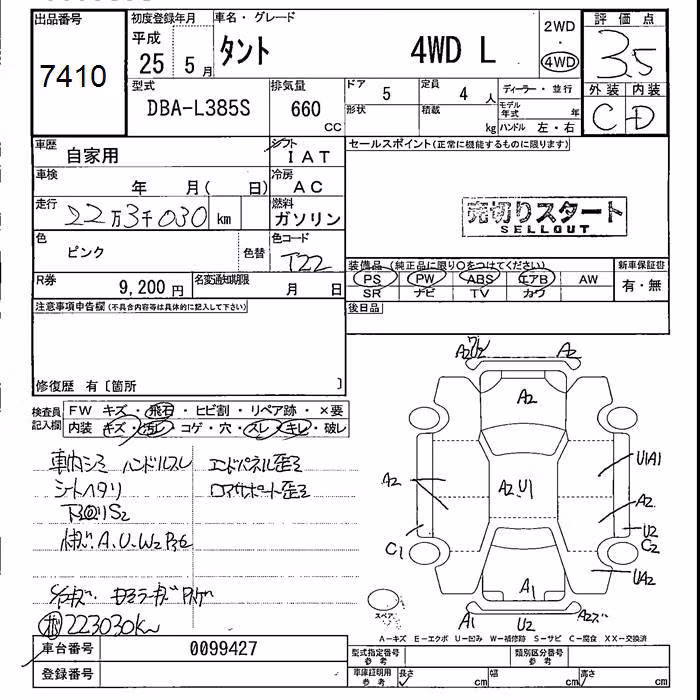 出品番号
7410
初度登録年月
平成
25 5月
車名・グレード
タント 4WD L
2WD
・
4WD
評価点
3.5
外装 内装
C D
型式
DBA-L385S
排気量
660
CC
ドア
5
定員
4 人
形状
積載
kg
ディーラー・並行
モデル年式 年
ハンドル 左・右
車歴
自家用
シフト
IAT
車検
年 月( 日)
冷房
AC
走行
22万3千030 km
燃料
ガソリン
色
ピンク
色替
色コード
T22
R券
9,200 円
名変通知期限
月 日
セールスポイント(正常に機能するものに限ります)
売切りスタート
SELLOUT
装備品(純正品に限り○をつけてください)
PS PW ABS エアB AW
SR ナビ TV カワ
新車保証書
有・無
後日品
注意事項申告欄(不具合内容等は具体的に記入して下さい)
修復歴 有〔箇所 〕
検査員
記入欄
FW キズ・飛石・ヒビ割・リペア跡・×要
内装 キズ・汚レ・コゲ・穴・スレ・キレ・破レ
車内シミ ハンドルスレ
シートヘタリ
下回りS2
エンドパネル歪ミ
ロアサポート歪ミ
223030km
A2 A2
A2
U1A1
A2
A2U1
A2
C1
U2
C2
UA2
A1
A1 U2 A2
スペア
A-キズ E-エクボ U-凹み W-補修跡 S-サビ C-腐食 XX-交換済
車台番号
0099427
登録番号
型式指定番号
参考
類別区分番号
参考
車庫証明用
参考
長さ cm
幅 cm
高さ cm